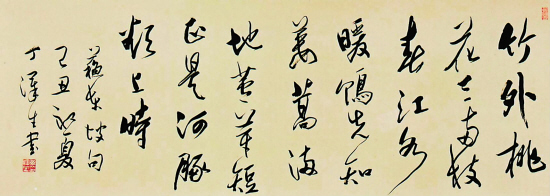 竹外桃
花三两枝
春江水
暖鸭先知
蒌蒿满
地芦芽短
正是河豚
欲上時
蘇东坡句
己丑初夏